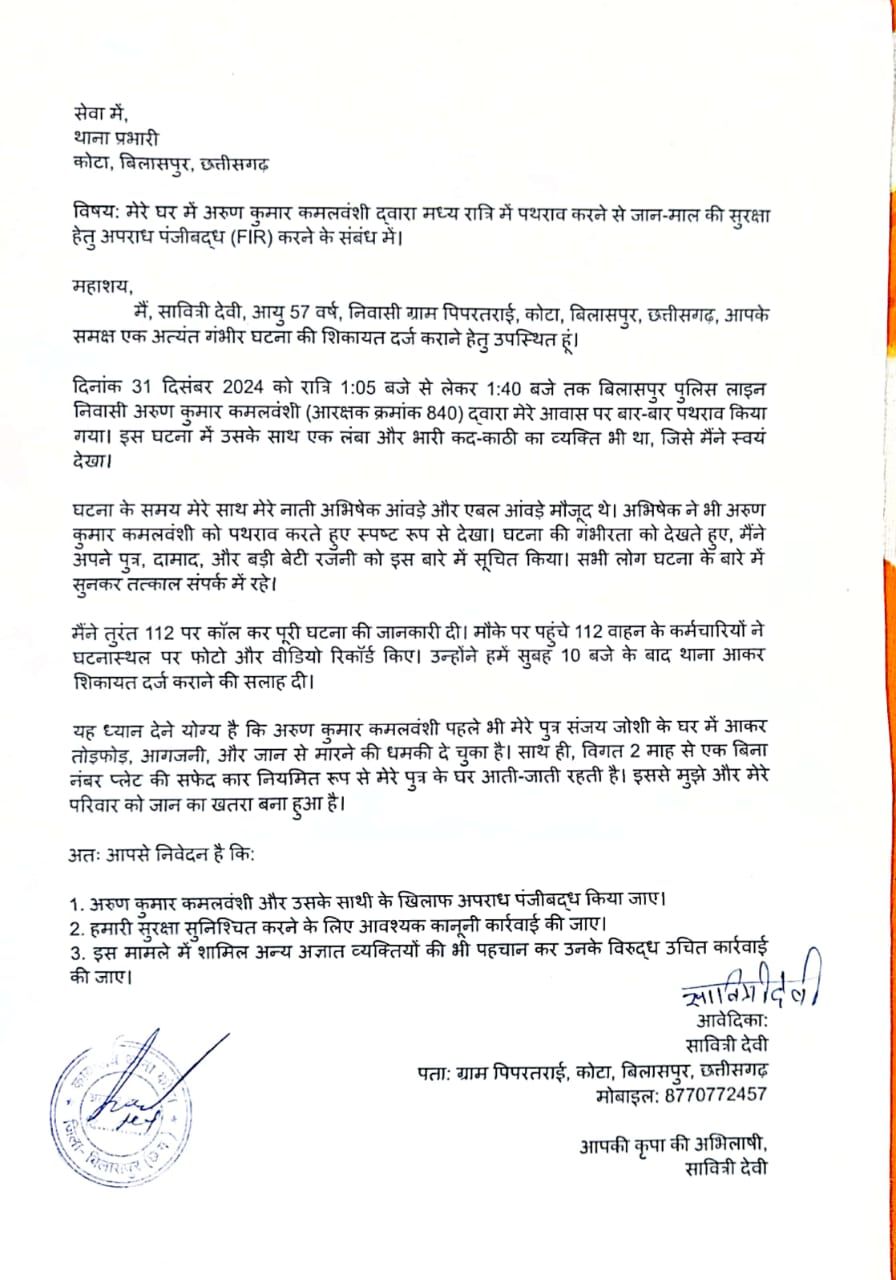 सेवा में,
थाना प्रभारी
कोटा, बिलासपुर, छत्तीसगढ़
विषय: मेरे घर में अरुण कुमार कमलवंशी द्वारा मध्य रात्रि में पथराव करने से जान-माल की सुरक्षा
हेतु अपराध पंजीबद्ध (FIR) करने के संबंध में।
महाशय,
मैं, सावित्री देवी, आयु 57 वर्ष, निवासी ग्राम पिपरतराई, कोटा, बिलासपुर, छत्तीसगढ़, आपके
समक्ष एक अत्यंत गंभीर घटना की शिकायत दर्ज कराने हेतु उपस्थित हूं।
दिनांक 31 दिसंबर 2024 को रात्रि 1:05 बजे से लेकर 1:40 बजे तक बिलासपुर पुलिस लाइन
निवासी अरुण कुमार कमलवंशी (आरक्षक क्रमांक 840) द्वारा मेरे आवास पर बार-बार पथराव किया
गया। इस घटना में उसके साथ एक लंबा और भारी कद-काठी का व्यक्ति भी था, जिसे मैंने स्वयं
देखा।
घटना के समय मेरे साथ मेरे नाती अभिषेक आंवड़े और एबल आंवड़े मौजूद थे। अभिषेक ने भी अरुण
कुमार कमलवंशी को पथराव करते हुए स्पष्ट रूप से देखा। घटना की गंभीरता को देखते हुए, मैंने
अपने पुत्र, दामाद, और बड़ी बेटी रजनी को इस बारे में सूचित किया। सभी लोग घटना के बारे में
सुनकर तत्काल संपर्क में रहे।
मैंने तुरंत 112 पर कॉल कर पूरी घटना की जानकारी दी। मौके पर पहुंचे 112 वाहन के कर्मचारियों ने
घटनास्थल पर फोटो और वीडियो रिकॉर्ड किए। उन्होंने हमें सुबह 10 बजे के बाद थाना आकर
शिकायत दर्ज कराने की सलाह दी।
यह ध्यान देने योग्य है कि अरुण कुमार कमलवंशी पहले भी मेरे पुत्र संजय जोशी के घर में आकर
तोड़फोड़, आगजनी, और जान से मारने की धमकी दे चुका है। साथ ही, विगत 2 माह से एक बिना
नंबर प्लेट की सफेद कार नियमित रूप से मेरे पुत्र के घर आती-जाती रहती है। इससे मुझे और मेरे
परिवार को जान का खतरा बना हुआ है।
अतः आपसे निवेदन है कि:
1. अरुण कुमार कमलवंशी और उसके साथी के खिलाफ अपराध पंजीबद्ध किया जाए।
2. हमारी सुरक्षा सुनिश्चित करने के लिए आवश्यक कानूनी कार्रवाई की जाए।
3. इस मामले में शामिल अन्य अज्ञात व्यक्तियों की भी पहचान कर उनके विरुद्ध उचित कार्रवाई
की जाए।
सावित्री देवी
आवेदिका:
सावित्री देवी
पता: ग्राम पिपरतराई, कोटा, बिलासपुर, छत्तीसगढ़
मोबाइल: 8770772457
आपकी कृपा की अभिलाषी,
सावित्री देवी
जिला-बिलासपुर (छ.ग.)